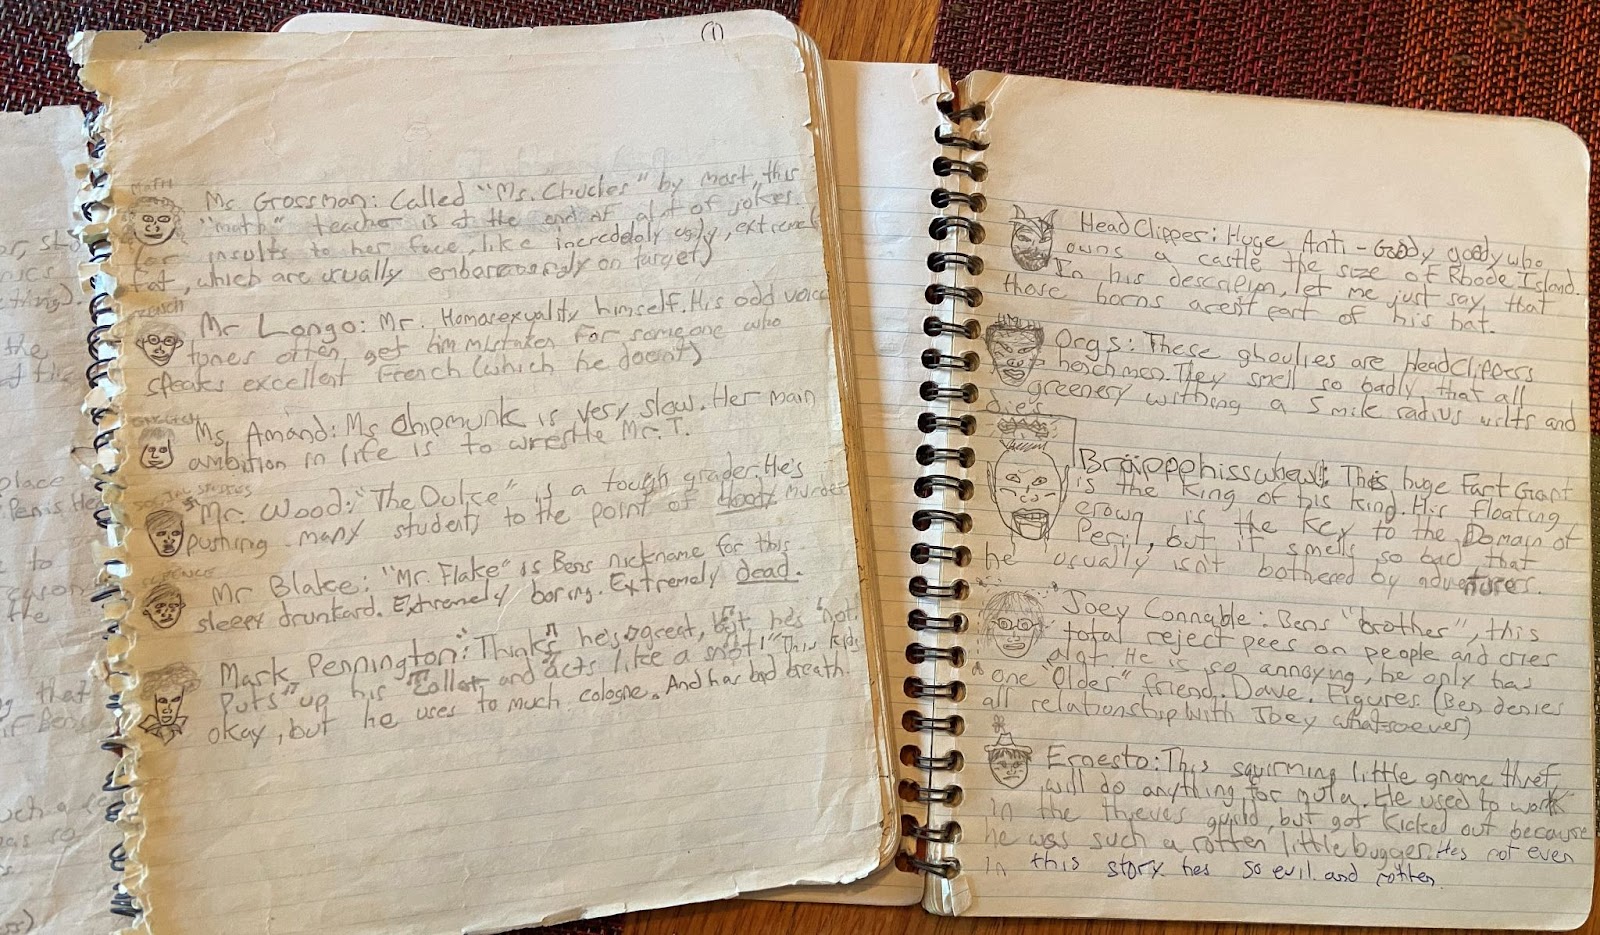 (1)
MATH
Ms. Grossman: Called "Ms. Chuckles" by most, this
"math" teacher is at the end of alot of jokes
(or insults to her face, like incredebly ugly, extremely
fat, which are usually embarassingly on target)
FRENCH
Mr Longo: Mr. Homosexuality himself. His odd voice
tones often get him mistaken for someone who
speaks excellent French (which he doesnt)
ENGLISH
Ms. Amand: Ms Chipmunk is very slow. Her main
ambition in life is to wrestle Mr. T.
SOCIAL STUDIES
Mr. Wood: "The Duke" is a tough grader. He's
pushing many students to the point of bloody murder
SCIENCE
Mr Blake: "Mr. Flake" is Bens nickname for this
sleepy drunkard. Extremely boring. Extremely dead.
Mark Pennington: Thinks he's great, but he's not.
Puts up his collar and acts like a snot! This kids
okay, but he uses to much cologne. And has bad breath.
HeadClipper: Huge Anti-Goody goody who
owns a castle the size of Rhode Island.
In his description, let me just say that
those horns arent part of his hat.
Orgs: These ghoulies are HeadClippers
henchmen. They smell so badly that all
greenery withing a 5 mile radius wilts and
dies.
This huge Fart Giant
is the King of his kind. His floating
crown is the key to the Domain of
Peril, but it smells so bad that
he usually isn't bothered by adventures.
Joey Connable: Bens "brother", this
total reject pees on people and cries
alot. He is so annoying, he only has
one "Older" friend. Dave. Figures. (Ben denies
all relationship with Joey whatsoever)
Ernesto: This squirming little gnome thief
will do anything for mula. He used to work
in the thieves guild, but got kicked out because
he was such a rotten little bugger. Hes not even
in this story hes so evil and rotten.